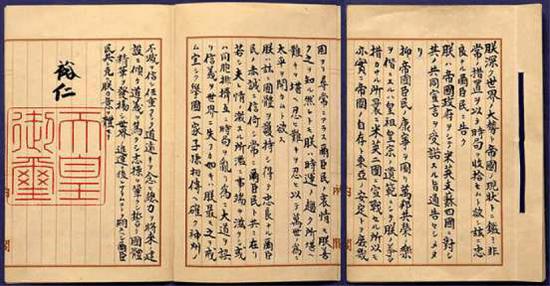 朕深ク世界ノ大勢ト帝國ノ現状トニ鑑ミ非
常ノ措置ヲ以テ時局ヲ收拾セムト欲シ茲ニ忠
良ナル爾臣民ニ告ク
朕ハ帝國政府ヲシテ米英支蘇四國ニ對シ
其ノ共同宣言ヲ受諾スル旨通告セシメタ
リ
抑〻帝國臣民ノ康寧ヲ圖リ萬邦共榮ノ樂
ヲ偕ニスルハ皇祖皇宗ノ遺範ニシテ朕ノ拳々
措カサル所曩ニ米英二國ニ宣戰セル所以モ
亦實ニ帝國ノ自存ト東亞ノ安定トヲ庶幾
内閣
固ヨリ尋常ニアラス爾臣民ノ衷情モ朕善
ク之ヲ知ル然レトモ朕ハ時運ノ趨ク所堪ヘ
難キヲ堪ヘ忍ヒ難キヲ忍ヒ以テ萬世ノ爲ニ
太平ヲ開カムト欲ス
朕ハ茲ニ國體ヲ護持シ得テ忠良ナル爾臣
民ノ赤誠ニ信倚シ常ニ爾臣民ト共ニ在リ
若シ夫レ情ノ激スル所濫ニ事端ヲ滋クシ或
ハ同胞排擠互ニ時局ヲ亂リ爲ニ大道ヲ誤
リ信義ヲ世界ニ失フカ如キハ朕最モ之ヲ戒
ム宜シク擧國一家子孫相傳ヘ確ク神州ノ
内閣
不滅ヲ信シ任重クシテ道遠キヲ念ヒ總力ヲ將來ノ建
設ニ傾ケ道義ヲ篤クシ志操ヲ鞏クシ誓テ國體
ノ精華ヲ發揚シ世界ノ進運ニ後レサラムコトヲ期スヘシ爾臣
民其レ克ク朕カ意ヲ體セヨ
裕仁
天皇
御璽